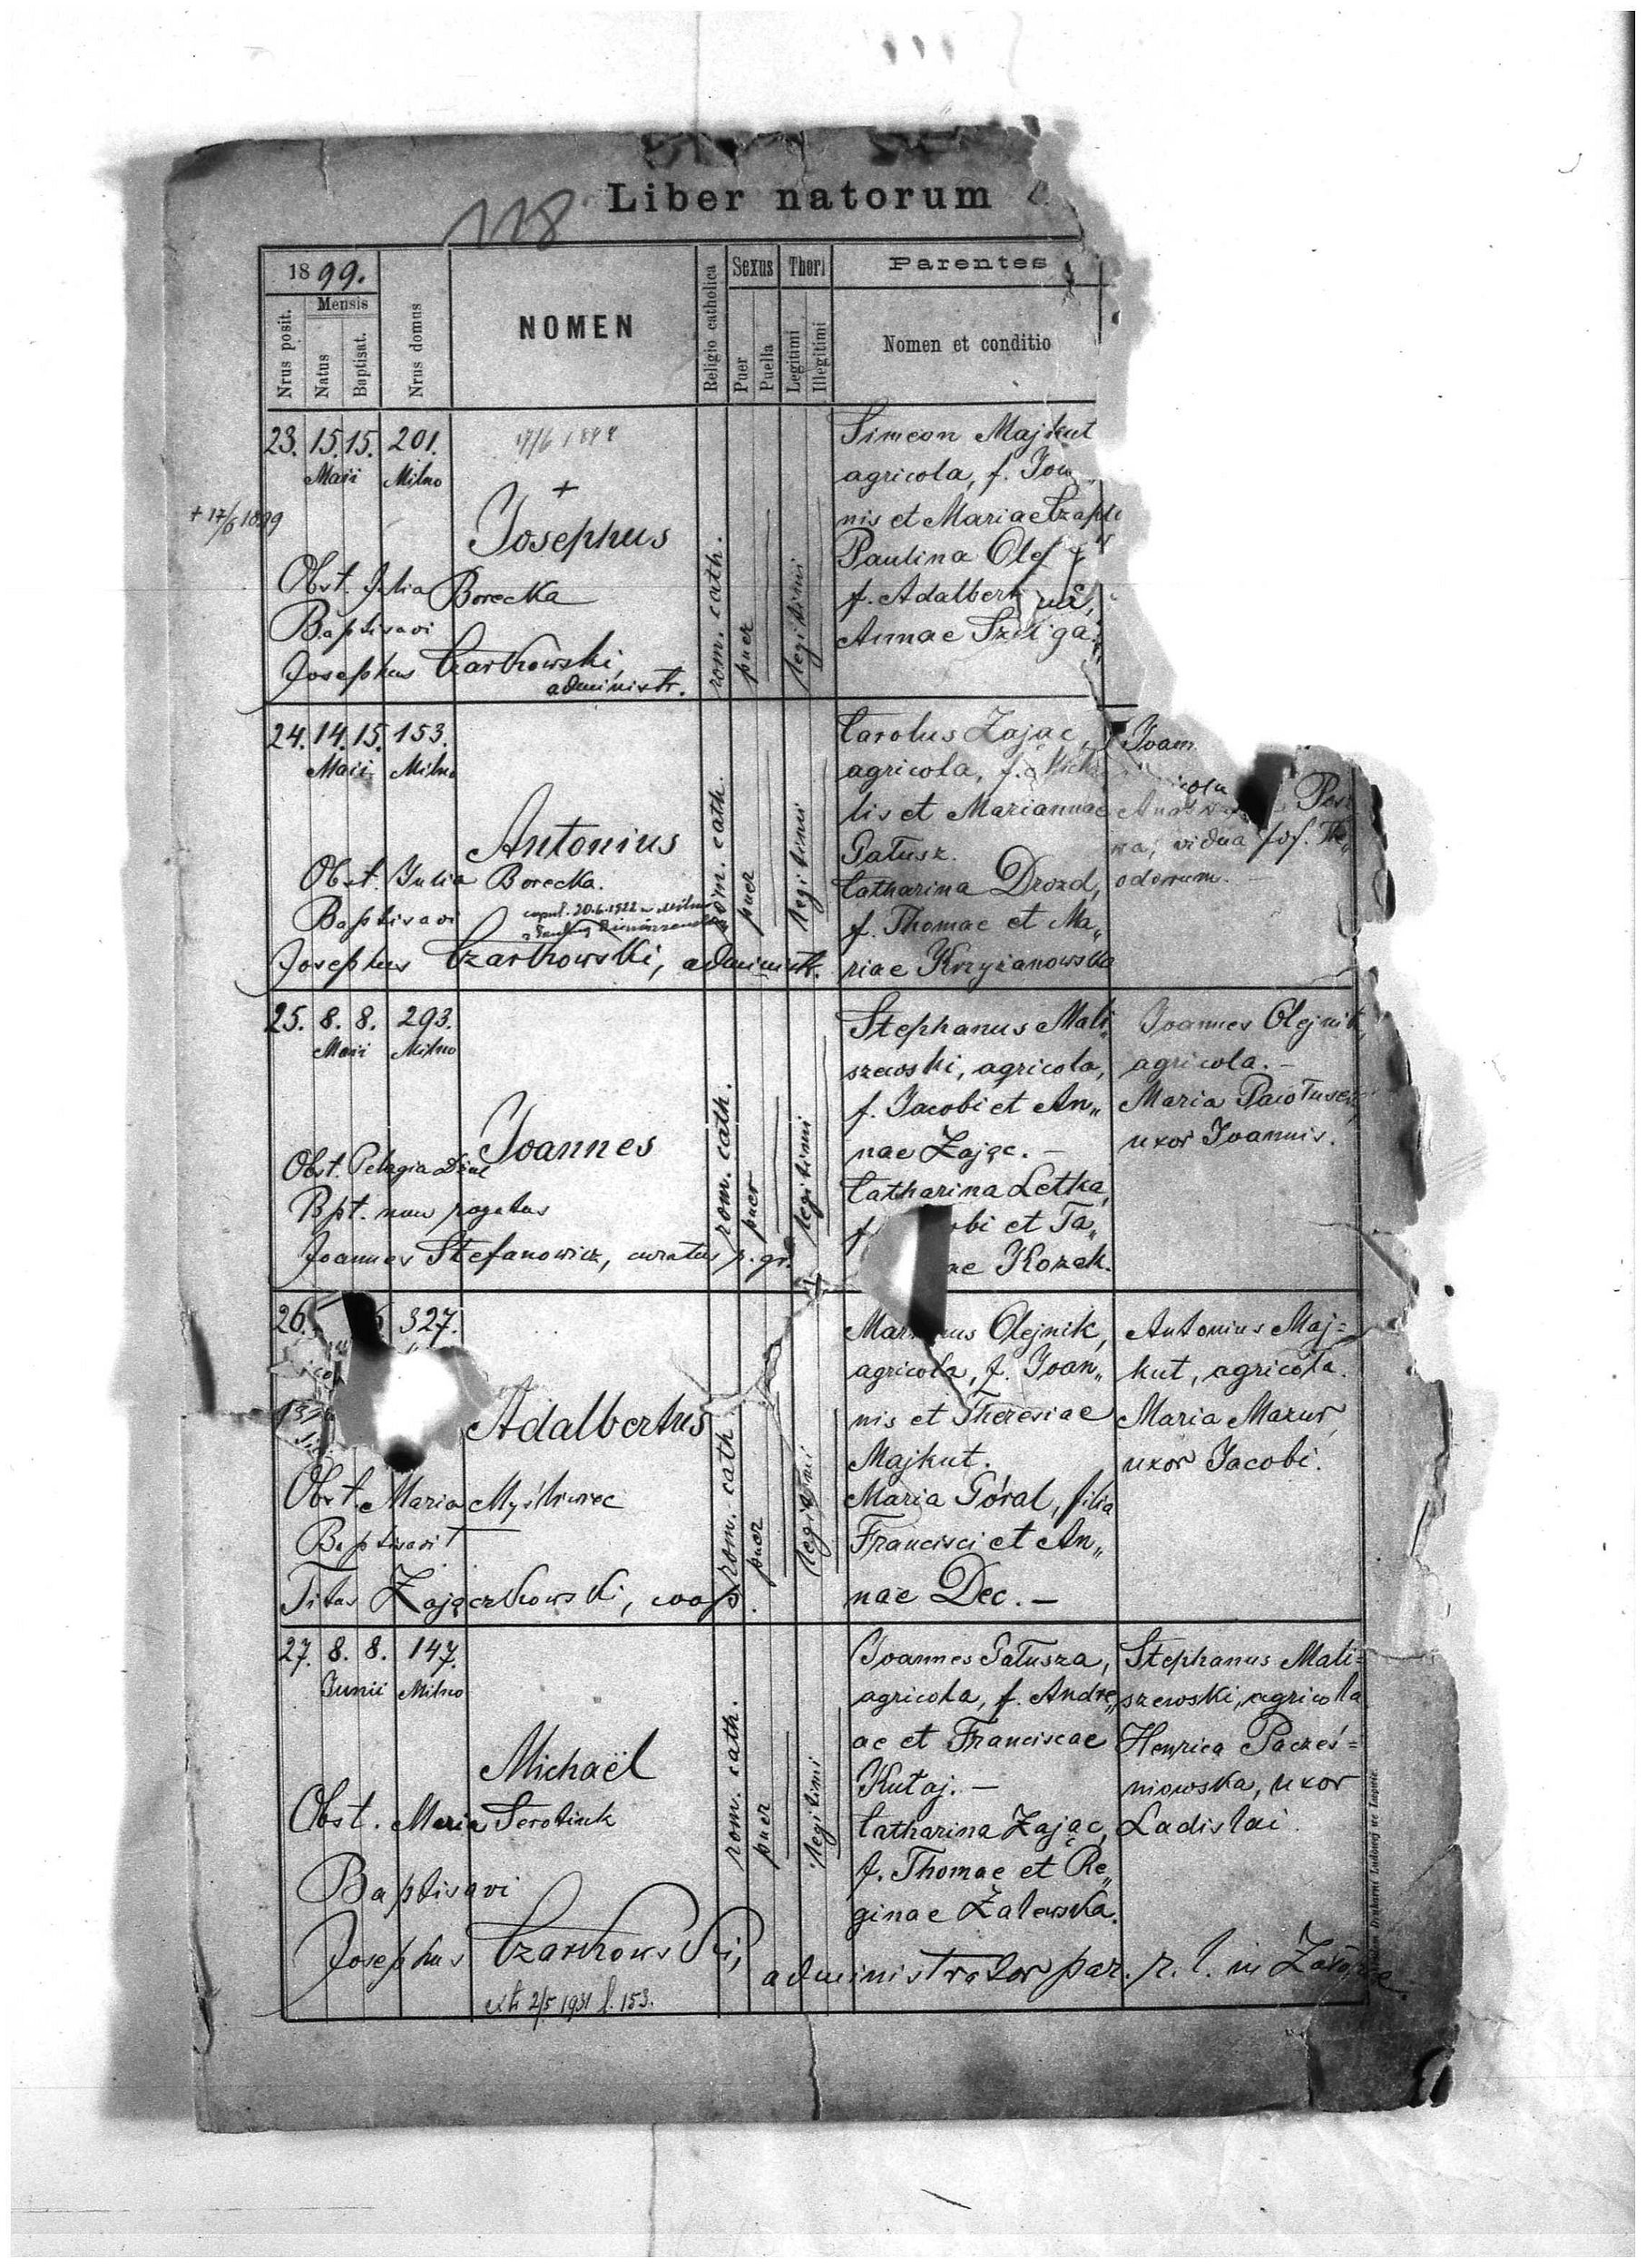 118
Liber natorum
1899.
Mensis
Nrus posit.
Natus
Baptisat.
Nrus domus
NOMEN
Religio catholica
Sexus
Puer
Puella
Thori
Legitimi
Illegitimi
Parentes
Nomen et conditio
23. 15. 15. 201.
Maii Milno
+ 17/6 1899
17/6 1899
+
Josephus
Obst. Julia Borecka
Baptisavi
Josephus Czarkowski,
administr.
rom. cath.
puer
legitimi
Simeon Majkut
agricola, f. Joan
nis et Mariae
Paulina
f. Adalberti
Annae Szeliga
24. 14. 15. 153.
Maii Milno
Antonius
Obst. Julia Borecka.
Baptisavi
copul. 20.6.1922 w Milno
Josephus Czarkowski, administr.
rom. cath.
puer
legitimi
Carolus Zając,
agricola, f. Micha
lis et Mariannae
Patusz.
Catharina Drozd,
f. Thomae et Ma„
riae Krzyżanowska
Joan
wa, vidua
odorum. –
25. 8. 8. 293.
Maii Milno
Joannes
Obst. Pelagia
Bpt. non rogatus
Joannes Stefanowicz, curatus r. gr.
rom. cath.
puer
legitimi
Stephanus Mali„
szewski, agricola,
f. Jacobi et An„
nae Zając. –
Catharina Letka,
f. obi et Ta„
ae Kozak.
Joannes Olejnik,
agricola. –
Maria
uxor Joannis.
26. 327.
Adalbertus
Obst. Maria Myśliwiec
Baptisavit
Titus Zajączkowski, coop.
rom. cath.
puer
legitimi
Mar us Olejnik,
agricola, f. Joan„
nis et Theresiae
Majkut.
Maria Góral, filia
Francisci et An„
nae Dec. –
Antonius Maj=
kut, agricola.
Maria Mazur,
uxor Jacobi.
27. 8. 8. 147.
Junii Milno
Michaël
Obst. Maria Serotiuk
Baptisavi
Josephus Czarkowski,
administrator par. r. l. in
2/5 1931 l. 153.
rom. cath.
puer
legitimi
Joannes Patusza,
agricola, f. Andre„
ae et Franciscae
Kutaj. –
Catharina Zając,
f. Thomae et Re„
ginae Zalewska.
Stephanus Mali=
szewski, agricola
Henrica Pacześ=
niowska, uxor
Ladislai.